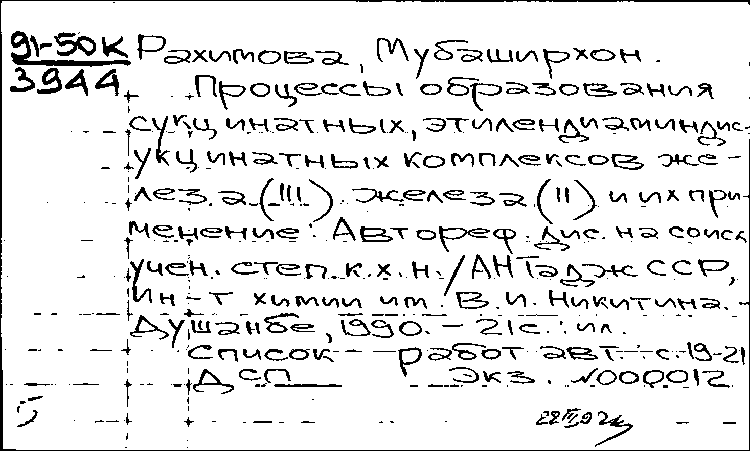 91-50К
3944
Рахимова, Мубаширхон.
Процессы образования
сукцинатных, этилендиаминдис-
укцинатных комплексов же-
леза (III) железа (II) и их при-
менение: Автореф. дис. на соиск
учен. степ. к.х.н. / АН ТаджССР,
Ин-т химии им. В.И. Никитина. -
Душанбе, 1990. - 21с.: ил.
Список работ авт.: с.19-21
ДСП Экз. №000012
5